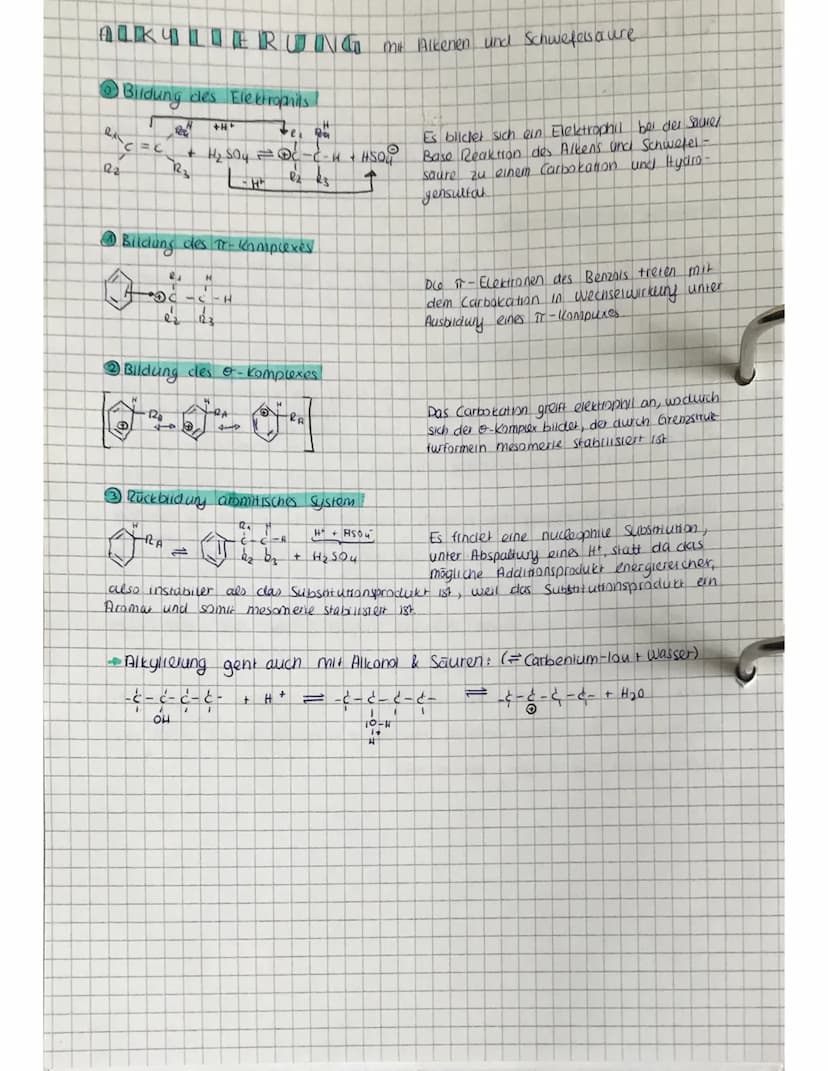 ALKYLIERUNG mit Alkenen und Schwefelsäure
0 Bildung des Elektrophils
R1 R4 +H+ R1 R4 H
C = C + H2SO4 ⇌ ⊕C - C - H + HSO4⊖
R2 R3 - H+ R2 R3
Es bildet sich ein Elektrophil bei der Säure/
Base Reaktion des Alkens und Schwefel-
säure zu einem Carbokation und Hydro-
gensulfat
1 Bildung des π-Komplexes
R1 H
⊕C - C - H
R2 R3
Die π-Elektronen des Benzols treten mit
dem Carbokation in Wechselwirkung unter
Ausbildung eines π-Komplexes
2 Bildung des σ-Komplexes
[ H RA ↔ H RA ↔ H RA ]
Das Carbokation greift elektrophil an, wodurch
sich der σ-Komplex bildet, der durch Grenzstruk
turformeln mesomerie stabilisiert ist
3 Rückbildung aromitisches System
H R1 H H+ + HSO4-
RA ⇌ C - C - H
R2 R3 + H2SO4
Es findet eine nucleophile Substitution,
unter Abspaltung eines H+, statt da das
mögliche Additionsprodukt energiereicher,
also instabiler als das Substitutionsprodukt ist, weil das Substitutionsprodukt ein
Aromat und somit mesomerie stabilisiert ist.
→ Alkylierung geht auch mit Alkohol & Säuren: (⇌ Carbenium-Ion + Wasser)
-C-C-C-C- + H+ ⇌ -C-C-C-C- ⇌ -C-C-C-C- + H2O
OH IO-H ⊕
+
H